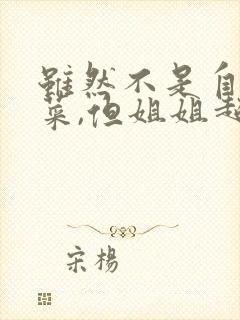 雖然不是自
菜,但姐姐超
宋楊